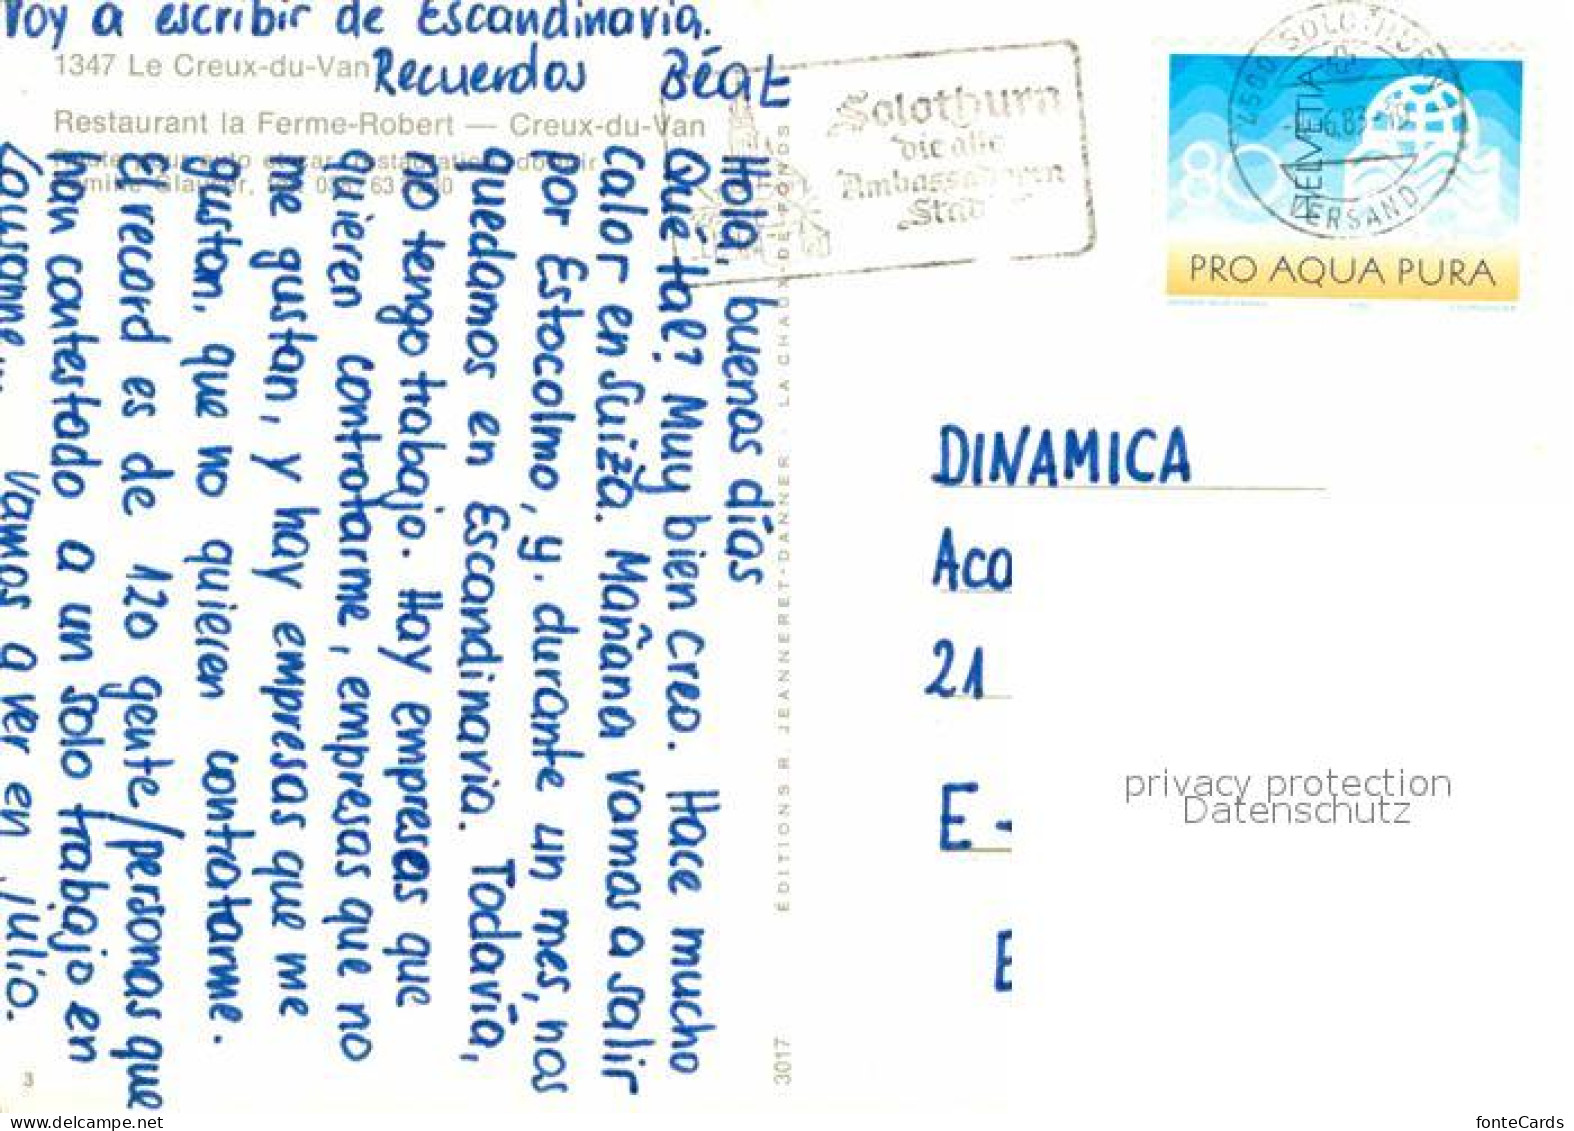 Hola, buenos días
Qué tal? Muy bien creo. Hace mucho
calor en Suiza. Mañana vamos a salir
por Estocolmo, y. durante un mes, nos
quedamos en Escandinavia. Todavía,
no tengo trabajo. Hay empresas que
quieren contratarme, empresas que no
me gustan, y hay empresas que me
gustan, que no quieren contratarme.
El record es de 120 gente/personas que
han contestado a un solo trabajo en
Lausanne... Vamos a ver en julio.
Voy a escribir de Escandinavia.
Recuerdos Béat
1347 Le Creux-du-Van
Restaurant la Ferme-Robert — Creux-du-Van
3
EDITIONS R. JEANNERET-DANNER - LA CHAUX-DE-FONDS
3017
Solothurn
die alte
Ambassadoren
Stadt
4500 SOLOTHURN
VERSAND
HELVETIA
80
PRO AQUA PURA
DINAMICA
Aco
21
E-
E
privacy protection
Datenschutz
fonteCards